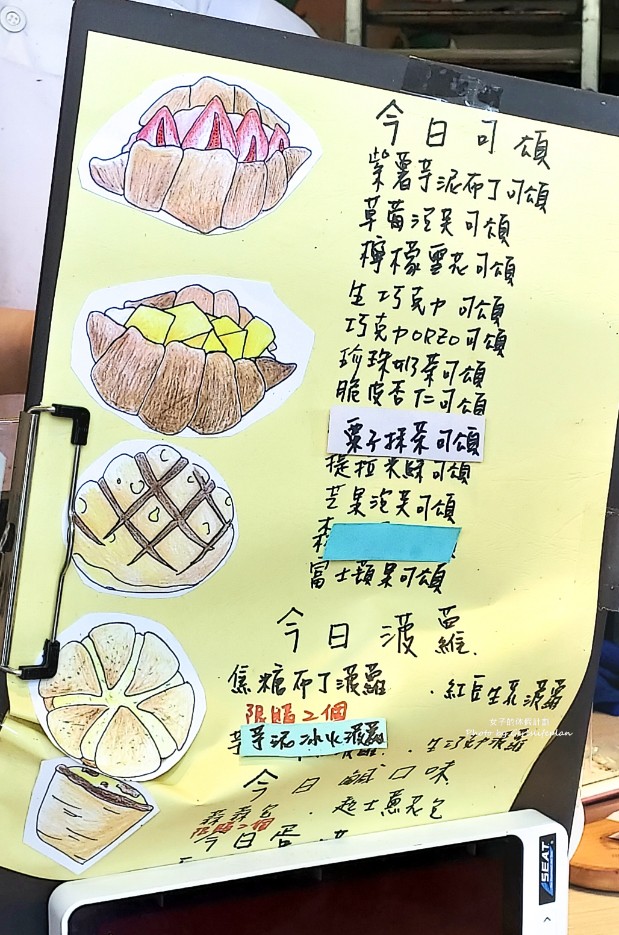 今日可頌
紫薯芋泥布丁可頌
草莓泡芙可頌
檸檬雪花可頌
生巧克力可頌
巧克力OREO可頌
珍珠奶茶可頌
脆皮杏仁可頌
栗子抹茶可頌
提拉米酥可頌
芒果泡芙可頌
富士蘋果可頌
今日菠蘿
焦糖布丁菠蘿 ·紅豆生乳菠蘿
限購2個
芋泥冰火菠蘿 ·生巧克力菠蘿
今日鹹口味
蒜蒜包 ·起士蔥花包
限購2個
今日蛋
女子的休假計劃
Photo by
SEAT